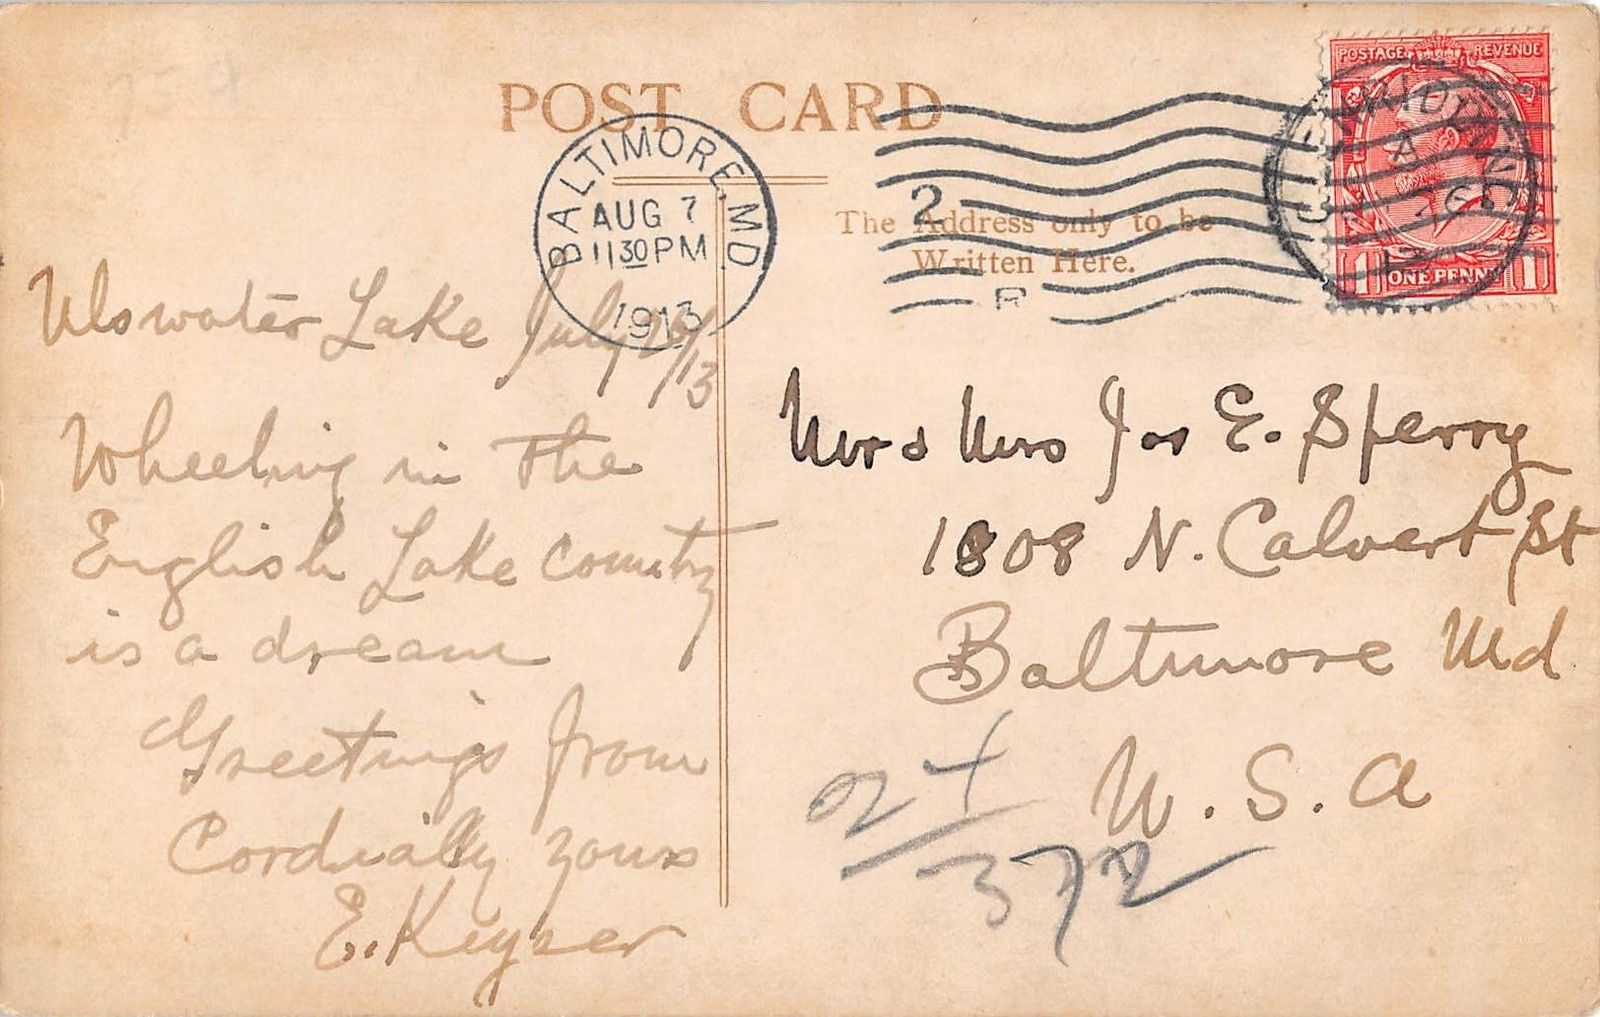 POST CARD
BALTIMORE, MD.
AUG 7
11 30 PM
1913
2
The Address only to be
Written Here.
POSTAGE REVENUE
ONE PENNY
1 1
Ulswater Lake July
/13
Wheeling in the
English Lake country
is a dream
Greetings from
Cordially yours
E. Keyser
Mr & Mrs Jos E. Sperry
1808 N. Calvert St
Baltimore Md
U. S. A
372